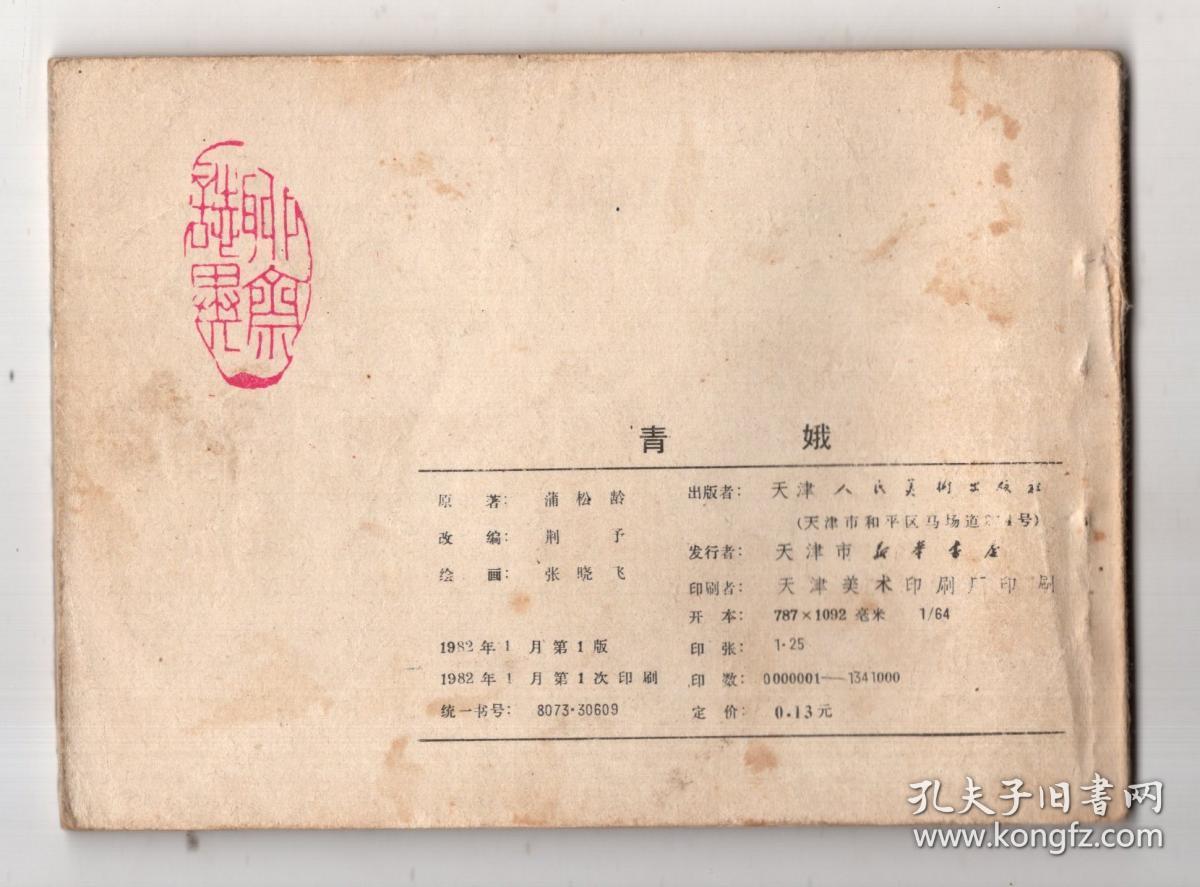 聊斋志異
青 娥
原 著: 蒲松龄
改 编: 荆 予
绘 画: 张晓飞
1982年1月第1版
1982年1月第1次印刷
统一书号: 8073·30609
出版者: 天津人民美術出版社
(天津市和平区马场道 号)
发行者: 天津市新华书店
印刷者: 天津美术印刷厂印刷
开 本: 787×1092 毫米 1/64
印 张: 1·25
印 数: 0000001——1341000
定 价: 0.13元
孔夫子旧書网
www.kongfz.com